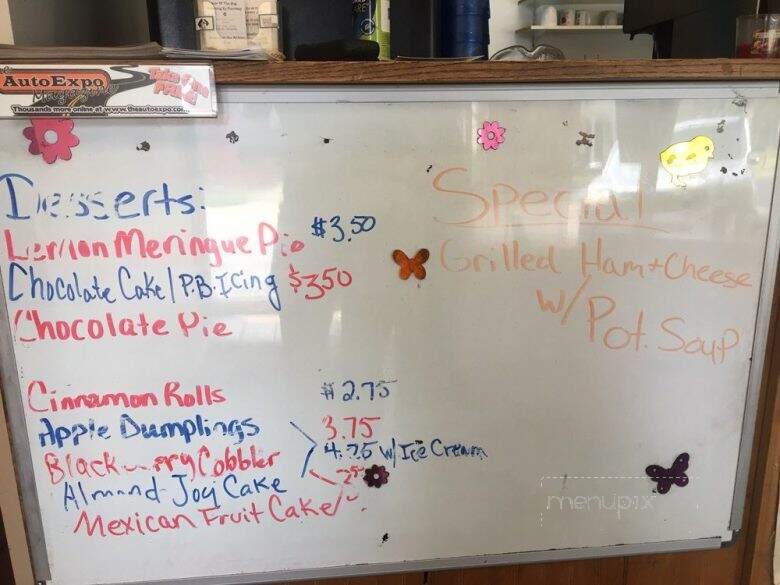 AutoExpo
Magazine
Take One FREE!
Thousands more online at www.theautoexpo.co
Desserts:
Lemon Meringue Pie $3.50
Chocolate Cake/P.B. Icing $3.50
Chocolate Pie
Cinnamon Rolls $2.75
Apple Dumplings 3.75
4.75 w/Ice Cream
Blackberry Cobbler
Almond Joy Cake
Mexican Fruit Cake
Special
Grilled Ham + Cheese
w/Pot. Soup
menupix